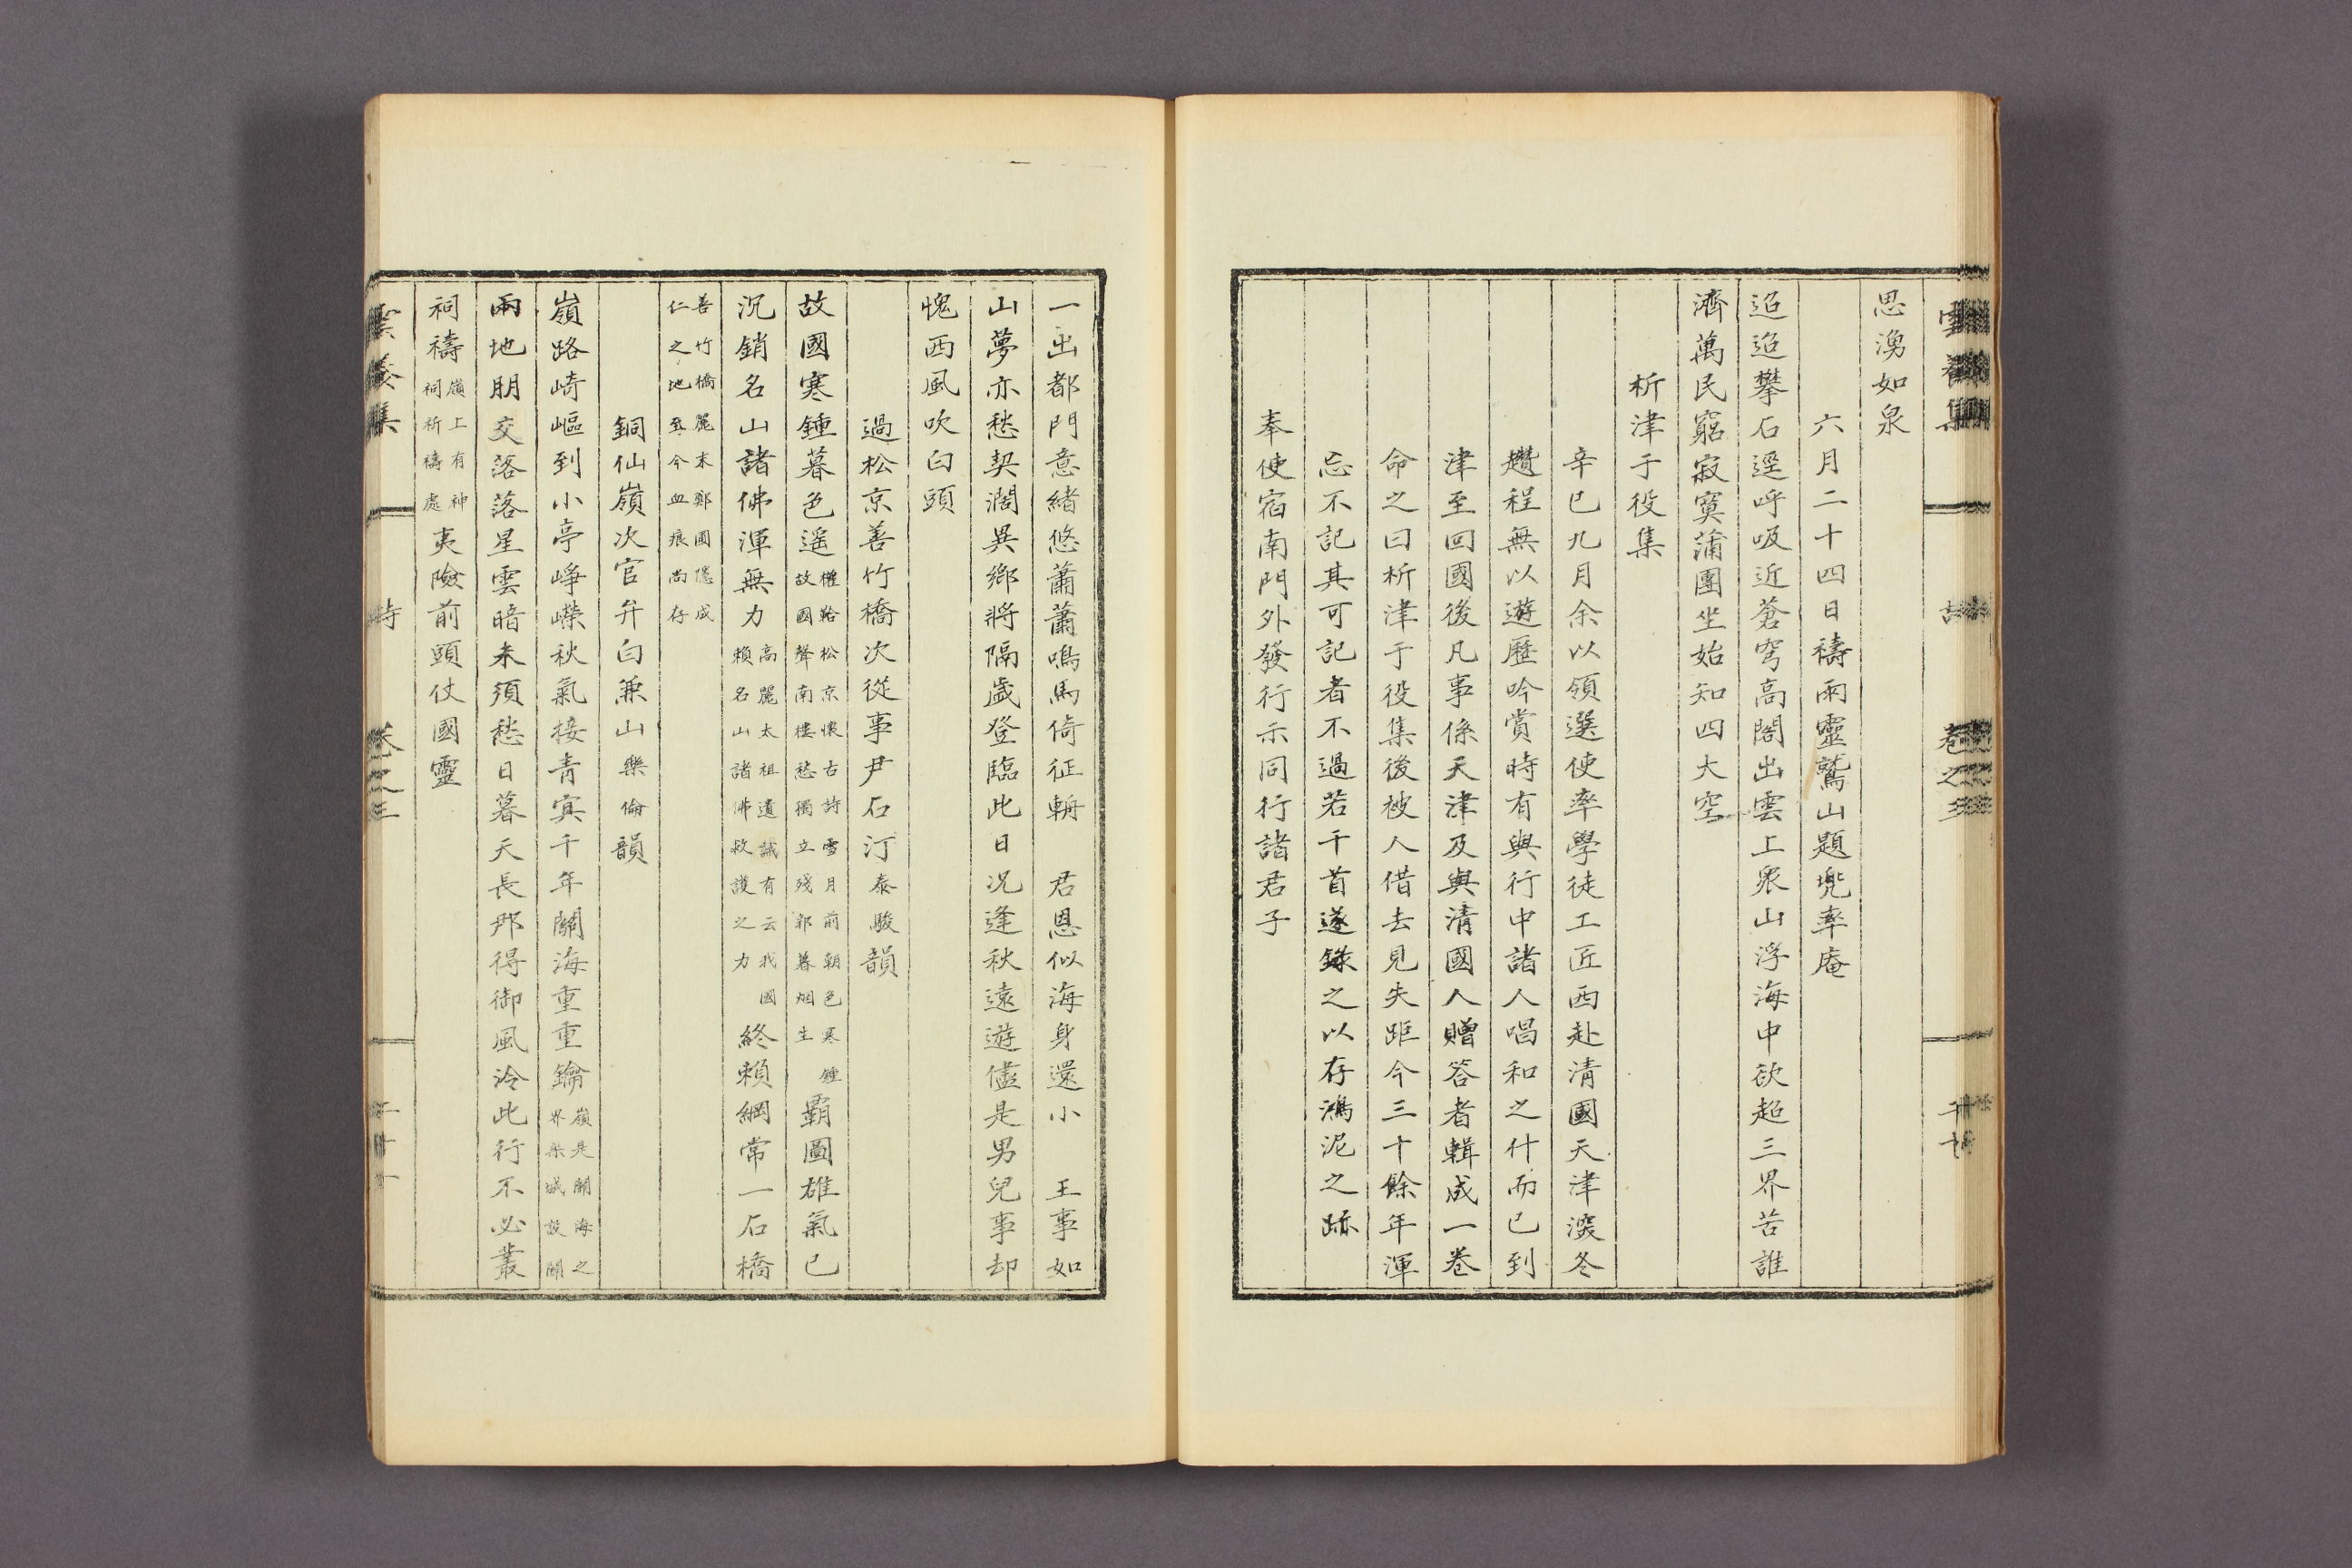 思湧如泉
六月二十四日禱雨靈鷲山題兜率庵
迢迢攀石逕呼吸近蒼穹高閣出雲上衆山浮海中欲超三界苦誰
濟萬民窮寂寞蒲團坐始知四大空
析津于役集
辛巳九月余以領選使率學徒工匠西赴清國天津深冬
趲程無以遊歷吟賞時有與行中諸人唱和之什而已到
津至回國後凡事係天津及與清國人贈答者輯成一卷
命之曰析津于役集後被人借去見失距今三十餘年渾
忘不記其可記者不過若干首遂錄之以存鴻泥之跡
奉使宿南門外發行示同行諸君子
一出都門意緖悠蕭蕭鳴馬倚征輈 君恩似海身還小 王事如
山夢亦愁契濶異鄕將隔歲登臨此日况逢秋遠遊儘是男兒事却
愧西風吹白頭
過松京善竹橋次從事尹石汀泰駿韻
故國寒鍾暮色遥權韐松京懷古詩雪月前朝色寒鍾故國聲南樓愁獨立殘郭暮烟生霸圖雄氣已
沉銷名山諸佛渾無力高麗太祖遺誡有云我國賴名山諸佛救護之力終賴綱常一石橋
善竹橋麗末鄭圃隱成仁之地至今血痕尚存
銅仙嶺次官弁白兼山樂倫韻
嶺路崎嶇到小亭崢嶸秋氣接靑冥千年關海重重鑰嶺是關海之界築城設關
兩地朋交落落星雲暗來須愁日暮天長那得御風泠此行不必叢
祠禱嶺上有神祠祈禱處夷險前頭仗國靈
雲養集 詩 卷之三